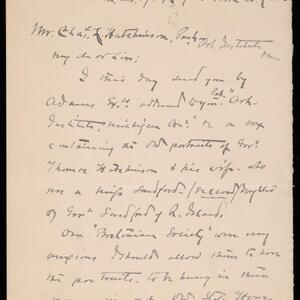 Mr. Chas. L. Hutchinson, Prest.
Art Institute
my dear Sir;
I this day send you by
Adams Ex. addressed to you "Art
Institute, Michigan Av." &c a box
containing the old portraits of Gov.
Thomas Hutchinson & his wife - who
was a Miss Sandford (second) daughter
of Gov. Sandford of R. Island.
Our "Bostonian Society" were very
anxious I should allow them to have
the portraits - to be hung in their
Old State House